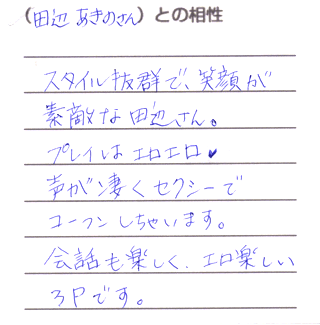 （田辺 あきのさん）との相性
スタイル抜群で、笑顔が
素敵な田辺さん。
プレイはエロエロ♥
声が凄くセクシーで
コーフンしちゃいます。
会話も楽しく、エロ楽しい
3Pです。